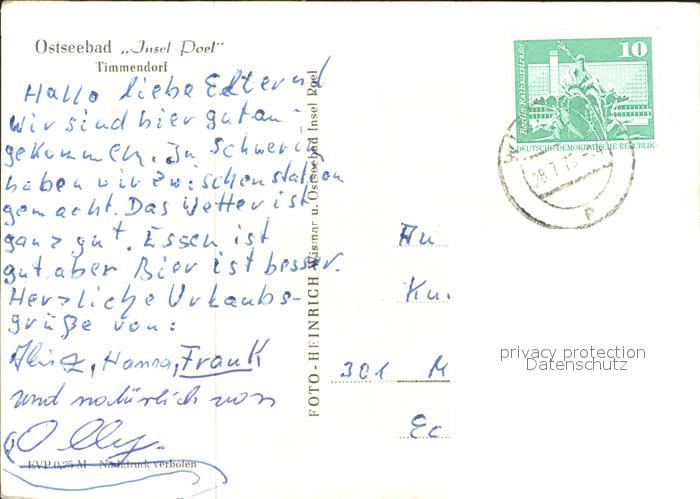 Ostseebad „Insel Poel“
Timmendorf
Hallo liebe Eltern!
wir sind hier gut an-
gekommen. In Schwerin
haben wir Zwischenstation
gemacht. Das Wetter ist
ganz gut. Essen ist
gut aber Bier ist besser.
Herzliche Urlaubs-
grüße von:
Hanna, Frank
und natürlich von
Olly.
EVP 0,25 M Nachdruck verboten
FOTO-HEINRICH Wismar u. Ostseebad Insel Poel
10
Berlin Rathausstraße
DEUTSCHE DEMOKRATISCHE REPUBLIK
28.7.7
An
Ku
301 M
privacy protection
Datenschutz